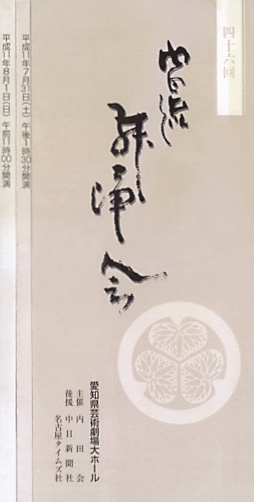 四十六回
内田流
舞踊会
平成11年7月31日（土）午後1時30分開演
平成11年8月1日（日）午前11時00分開演
愛知県芸術劇場大ホール
主催 内田会
後援 中日新聞社
名古屋タイムズ社